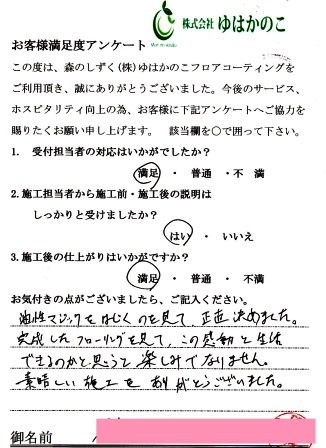 株式会社 ゆはかのこ
お客様満足度アンケート
この度は、森のしずく(株)ゆはかのこフロアコーティングを
ご利用頂き、誠にありがとうございました。今後のサービス、
ホスピタリティ向上の為、お客様に下記アンケートへご協力を
賜りたくお願い申し上げます。 該当欄を○で囲って下さい。
1. 受付担当者の対応はいかがでしたか?
満足 ・ 普通 ・ 不 満
2. 施工担当者から施工前・施工後の説明は
しっかりと受けましたか?
はい ・ いいえ
3. 施工後の仕上がりはいかがですか?
満足 ・ 普通 ・ 不満
お気付きの点がございましたら、ご記入ください。
油性マジックをはじくのを見て、正直決めました。
完成したフローリングを見て、この感動と生活
できるのかと思うと楽しみでなりません。
素晴しい施工をありがとうございました。
御名前